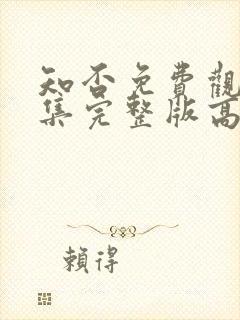 知否免費觀
集完整版高
賴得